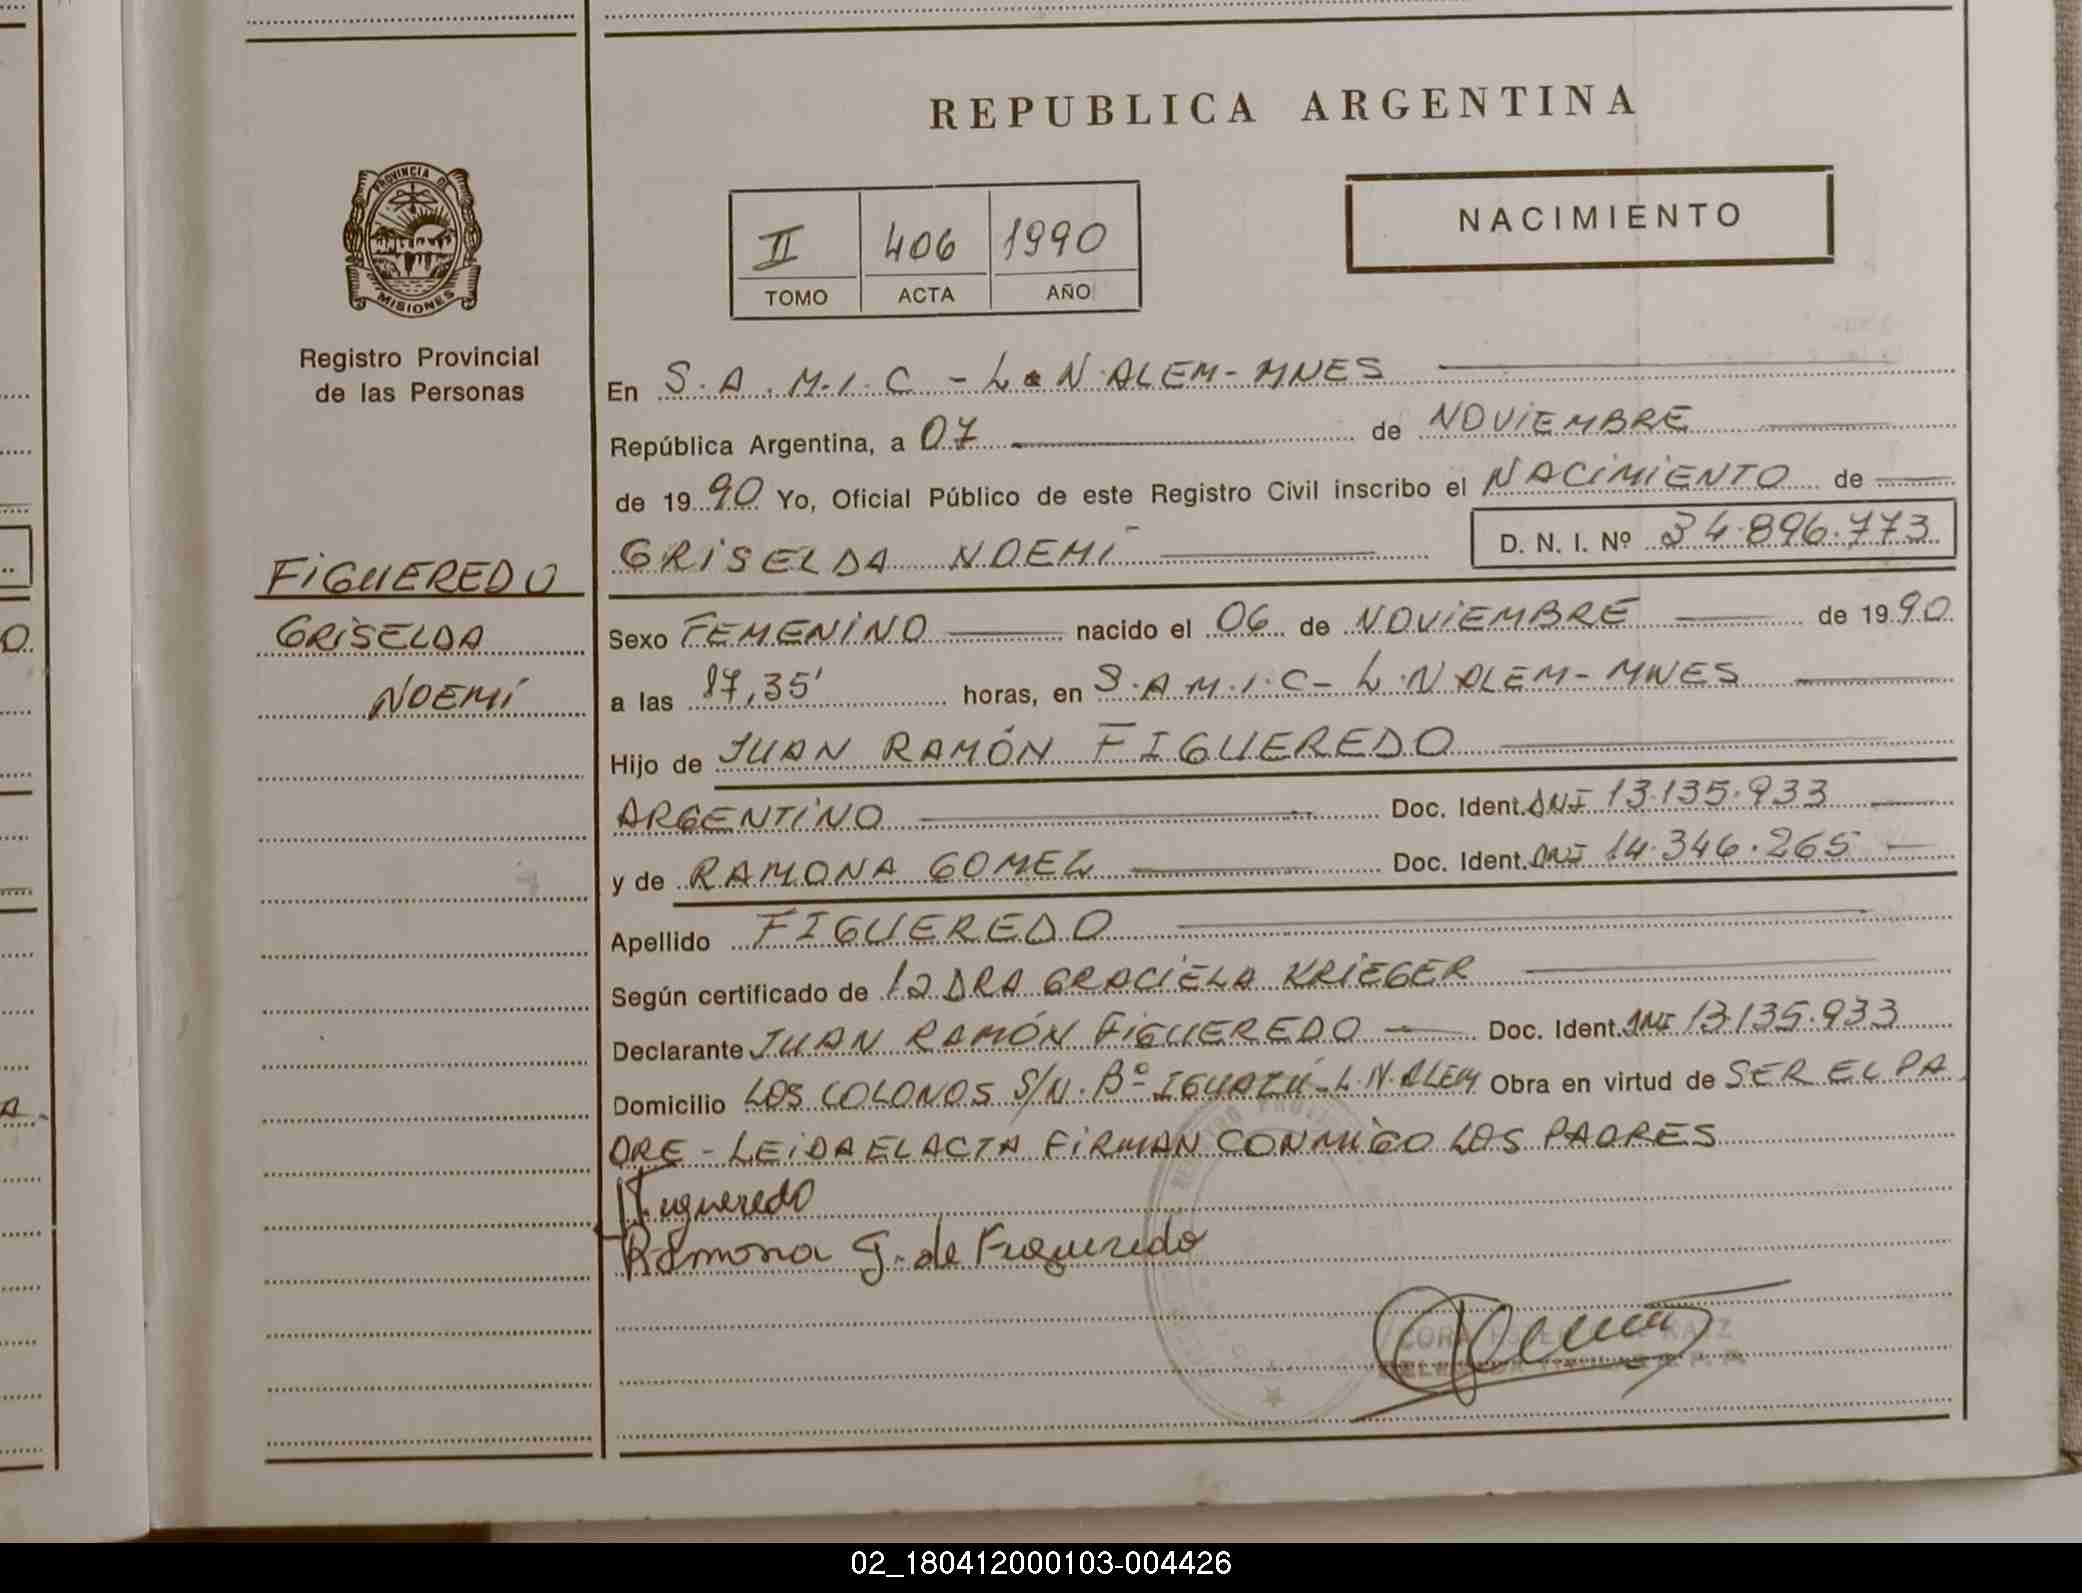 REPUBLICA ARGENTINA
PROVINCIA DE
MISIONES
Registro Provincial
de las Personas
II 406 1990
TOMO ACTA AÑO
NACIMIENTO
En S.A.M.I.C - L.N.ALEM-MNES
República Argentina, a 07 de NOVIEMBRE
de 1990 Yo, Oficial Público de este Registro Civil inscribo el NACIMIENTO de
GRISELDA NOEMI D. N. I. Nº 34.896.773
FIGUEREDO
GRISELDA
NOEMÍ
Sexo FEMENINO nacido el 06 de NOVIEMBRE de 1990
a las 17,35' horas, en S.A.M.I.C- L.N ALEM-MNES
Hijo de JUAN RAMÓN FIGUEREDO
ARGENTINO Doc. Ident. DNI 13.135.933
y de RAMONA GOMEZ Doc. Ident. DNI 14.346.265
Apellido FIGUEREDO
Según certificado de la DRA GRACIELA KRIEGER
Declarante JUAN RAMÓN FIGUEREDO Doc. Ident. DNI 13.135.933
Domicilio LOS COLONOS S/N. Bº IGUAZÚ-L.N.ALEM Obra en virtud de SER EL PA
DRE - LEIDA EL ACTA FIRMAN CONMIGO LOS PADRES
Figueredo
Ramona G. de Figueredo
02_180412000103-004426